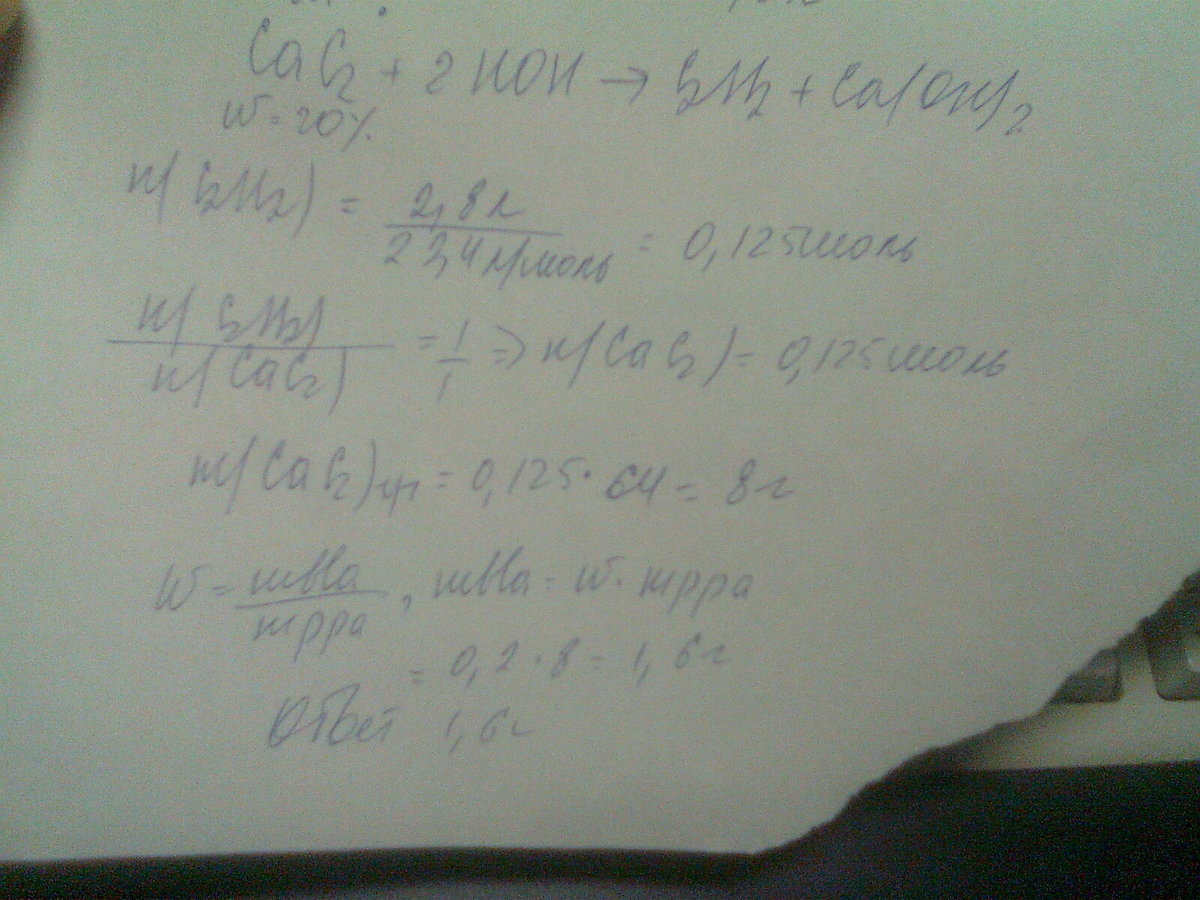 CaC₂ + 2HOH → C₂H₂ + Ca(OH)₂
W = 20%
n(C₂H₂) = 2,8 л / 22,4 л/моль = 0,125 моль
n(C₂H₂) / n(CaC₂) = 1/1 => n(CaC₂) = 0,125 моль
m(CaC₂) = 0,125 · 64 = 8 г
W = mвва / mрра , mвва = W · mрра
= 0,2 · 8 = 1,6 г
Ответ 1,6 г